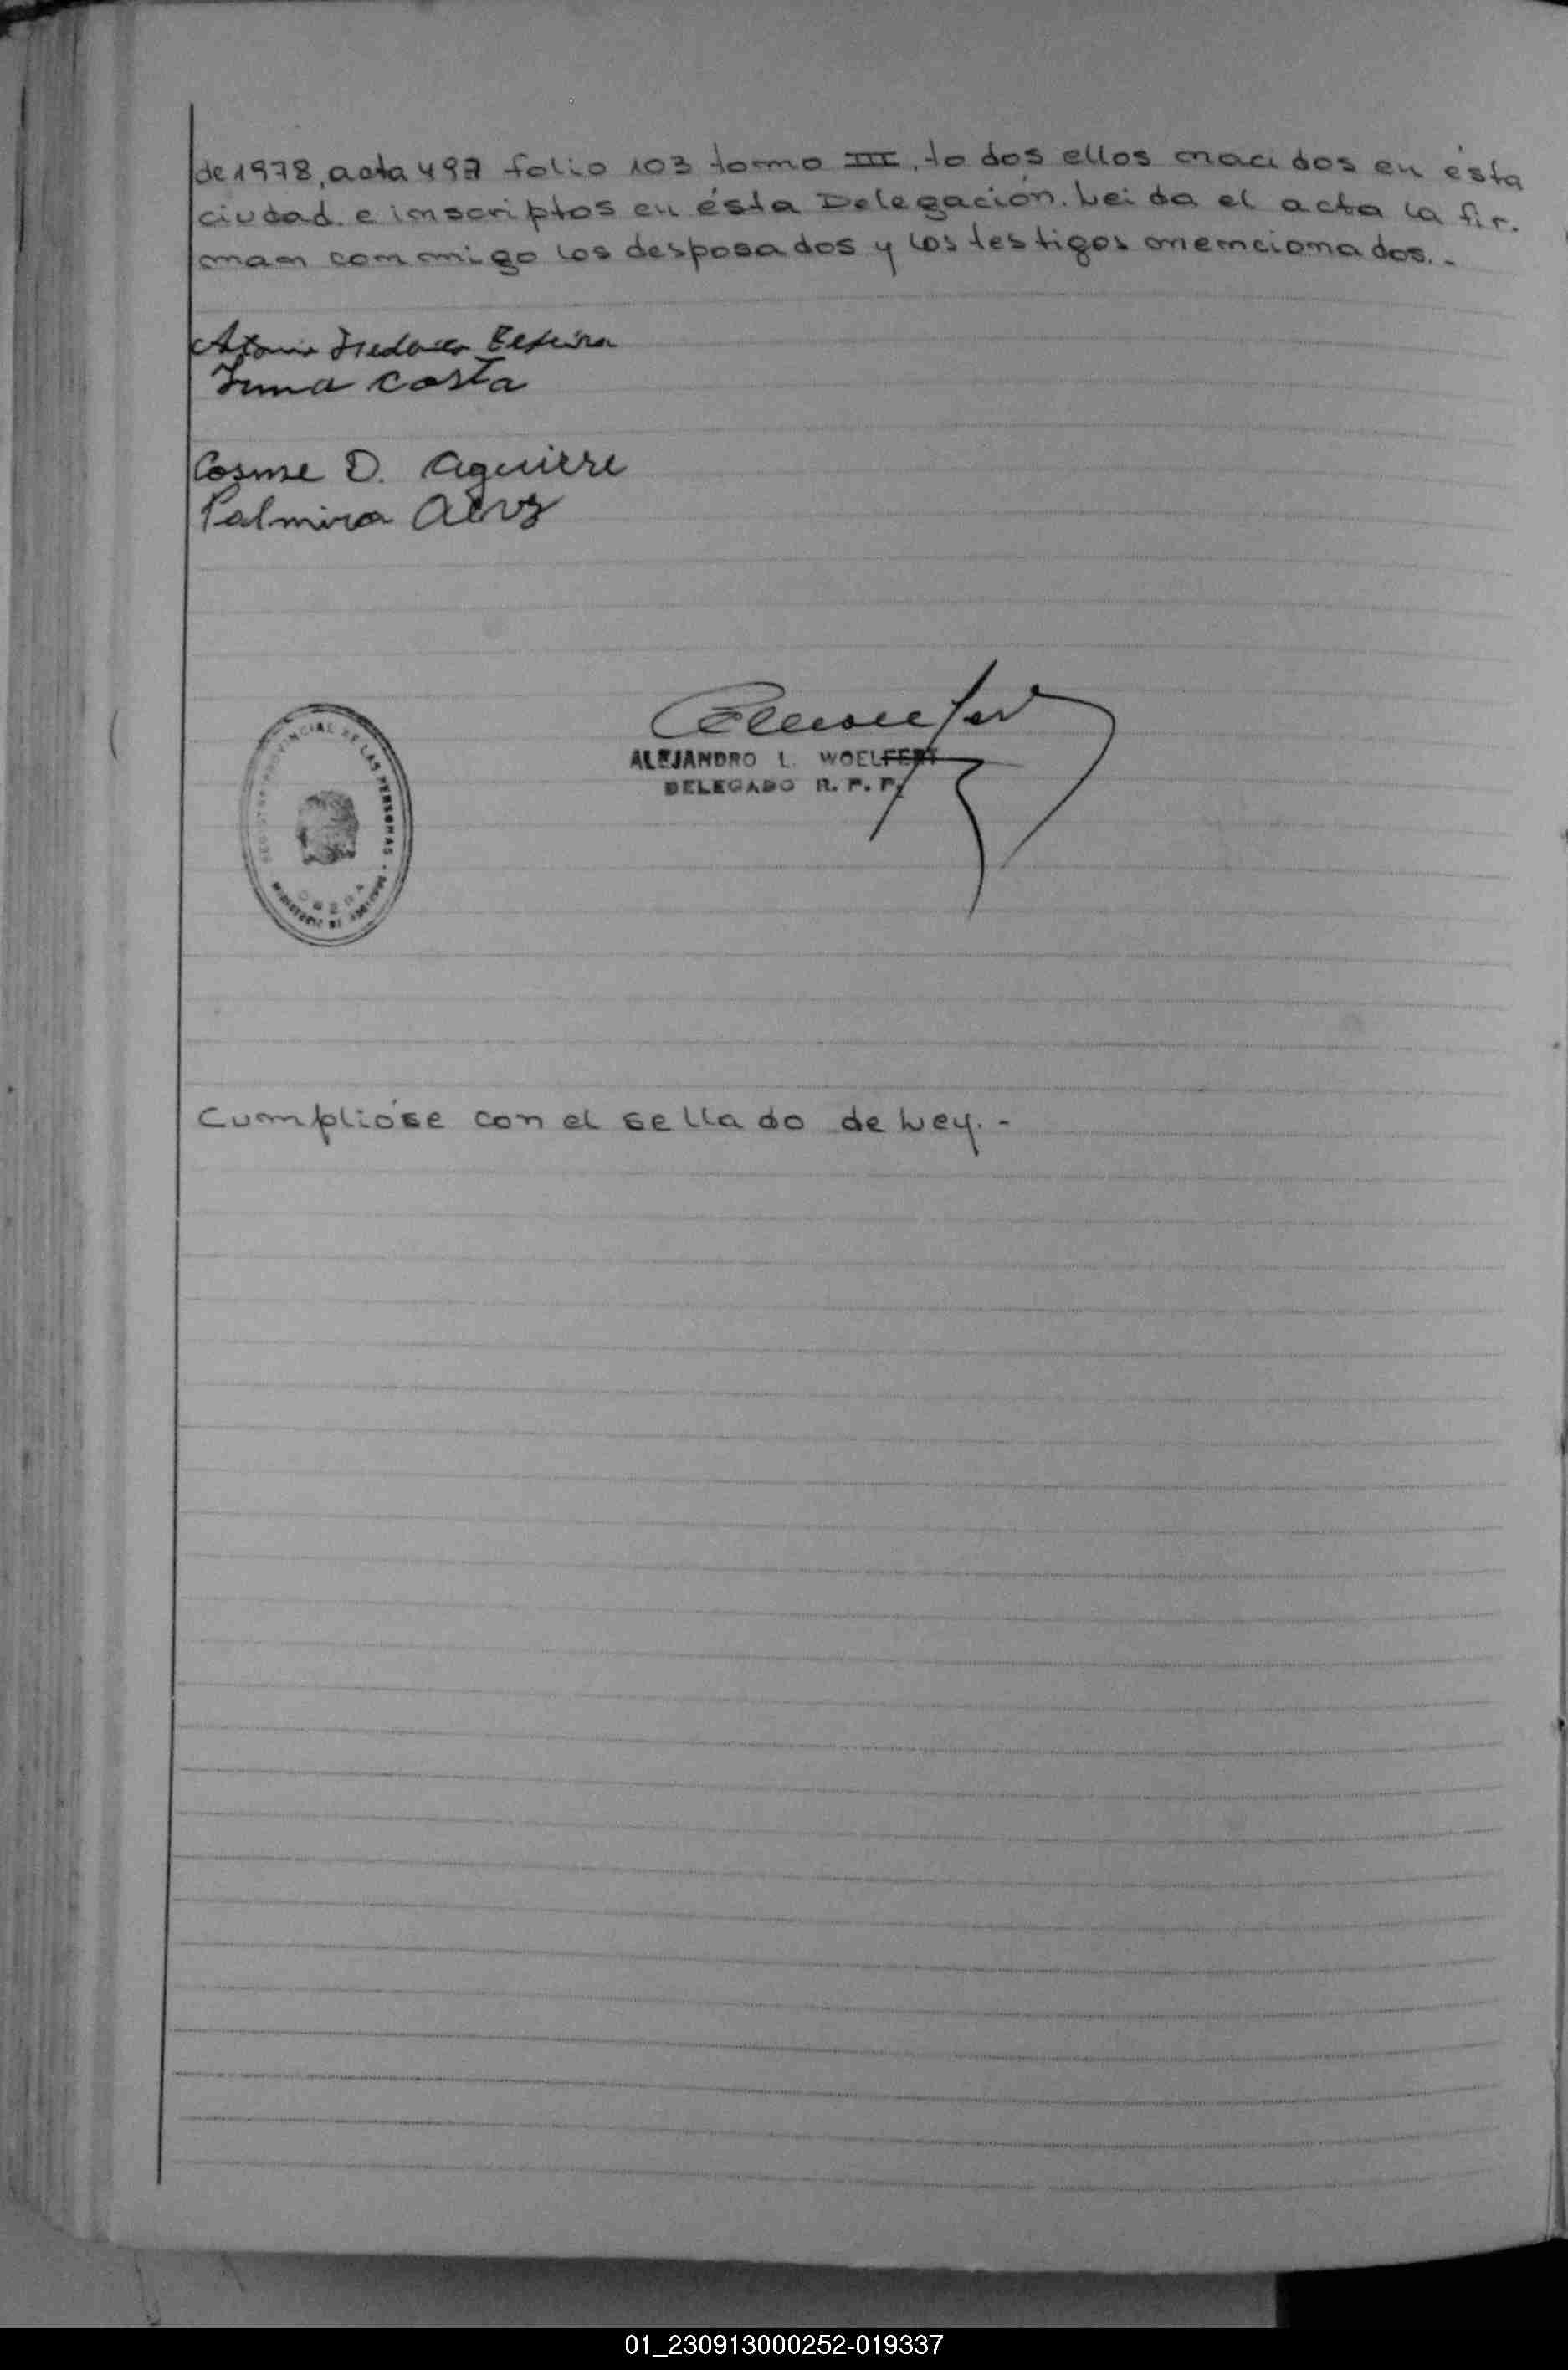 de 1978, acta 497 folio 103 tomo III, todos ellos nacidos en ésta
ciudad e inscriptos en ésta Delegación. Leida el acta la fir-
man conmigo los desposados y los testigos mencionados.-
Irma Costa
Cosme D. Aguirre
Palmira Alvz
ALEJANDRO L. WOELFERT
DELEGADO R. P. P.
REGISTRO PROVINCIAL DE LAS PERSONAS
MINISTERIO DE GOBIERNO
OBERA
Cumplióse con el sellado de Ley.-
01_230913000252-019337